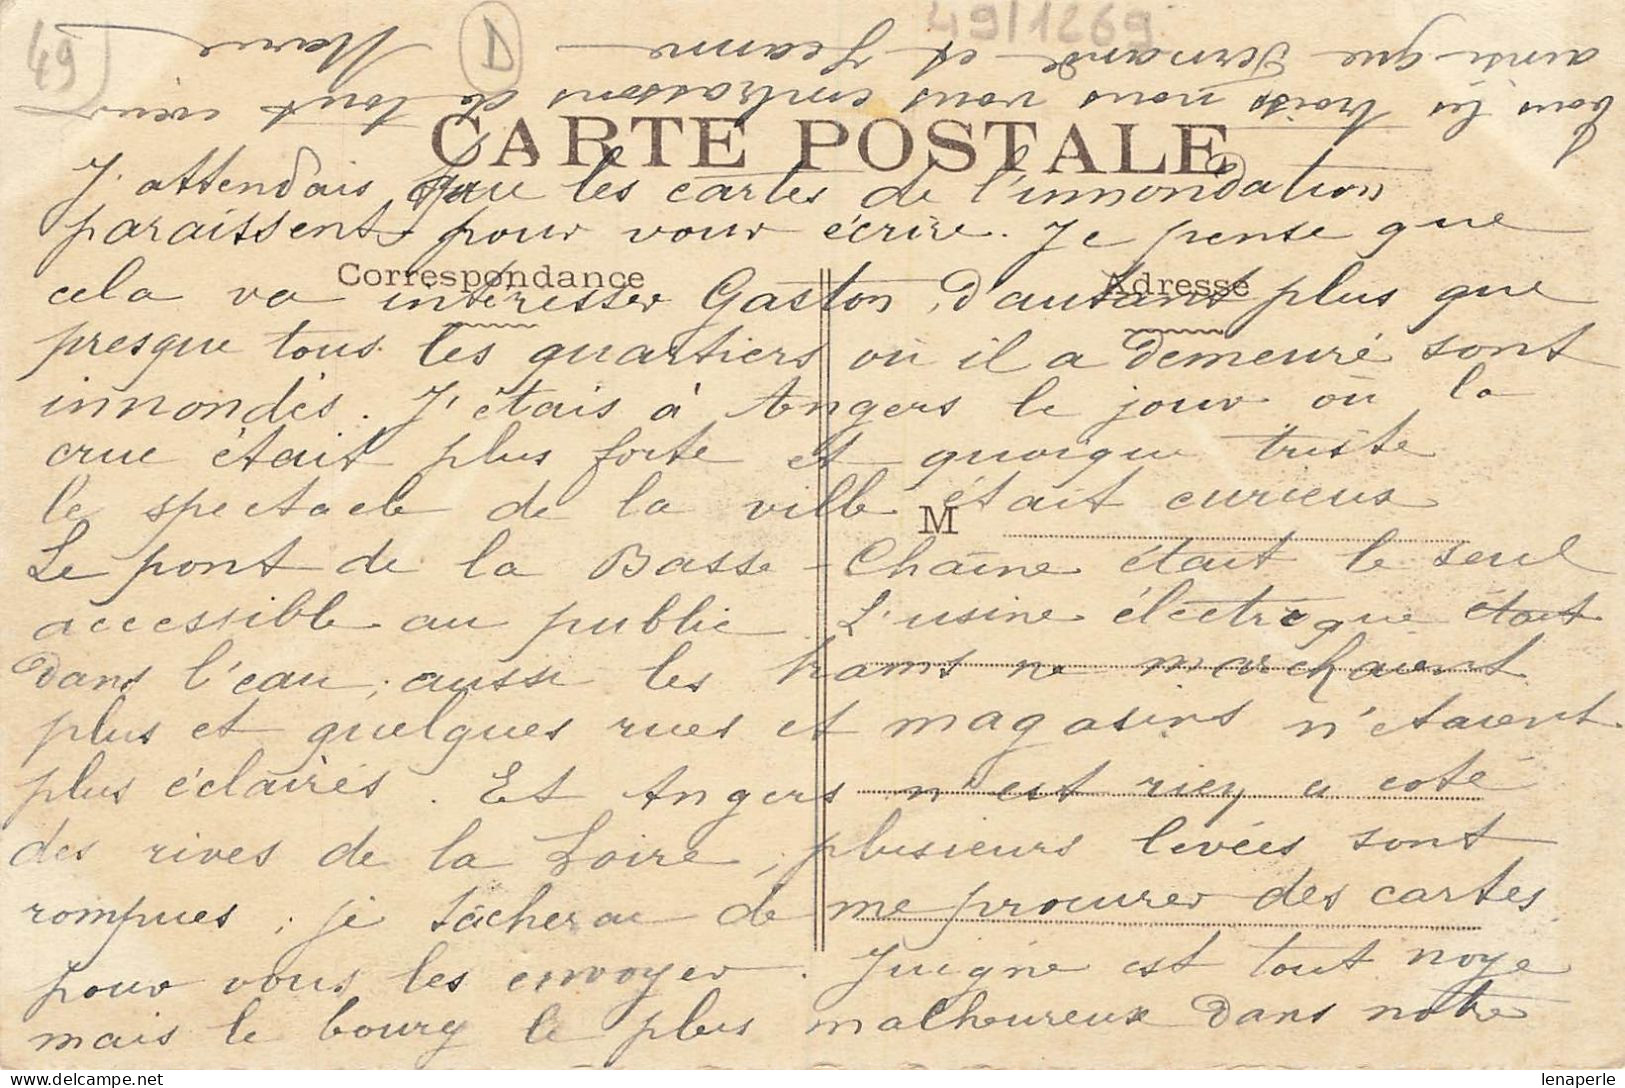 49
D
49/1269
CARTE POSTALE
Correspondance
Adresse
M
J'attendais que les cartes de l'innondation
paraissent pour vour écrire. Je pense que
cela va intéresser Gaston, d'autant plus que
presque tous les quartiers où il a demeuré sont
innondés. J'étais à Angers le jour où la
crue était plus forte et quoique triste
le spectacle de la ville était curieux
Le pont de la Basse-Chaîne était le seul
accessible au public. L'usine électrique était
dans l'eau, aussi les trams ne marchaient
plus et quelques rues et magasins n'étaient
plus éclairés. Et Angers n'est rien a coté
des rives de la Loire, plusieurs levées sont
rompues; je tâcherai de me procurer des cartes
pour vous les envoyer. Juigné est tout noyé
mais le bourg le plus malheureux dans notre
tous les trois nous vous embrassons de tout cœur
ainsi que Fernande et Jeanne
Marie
lenaperle